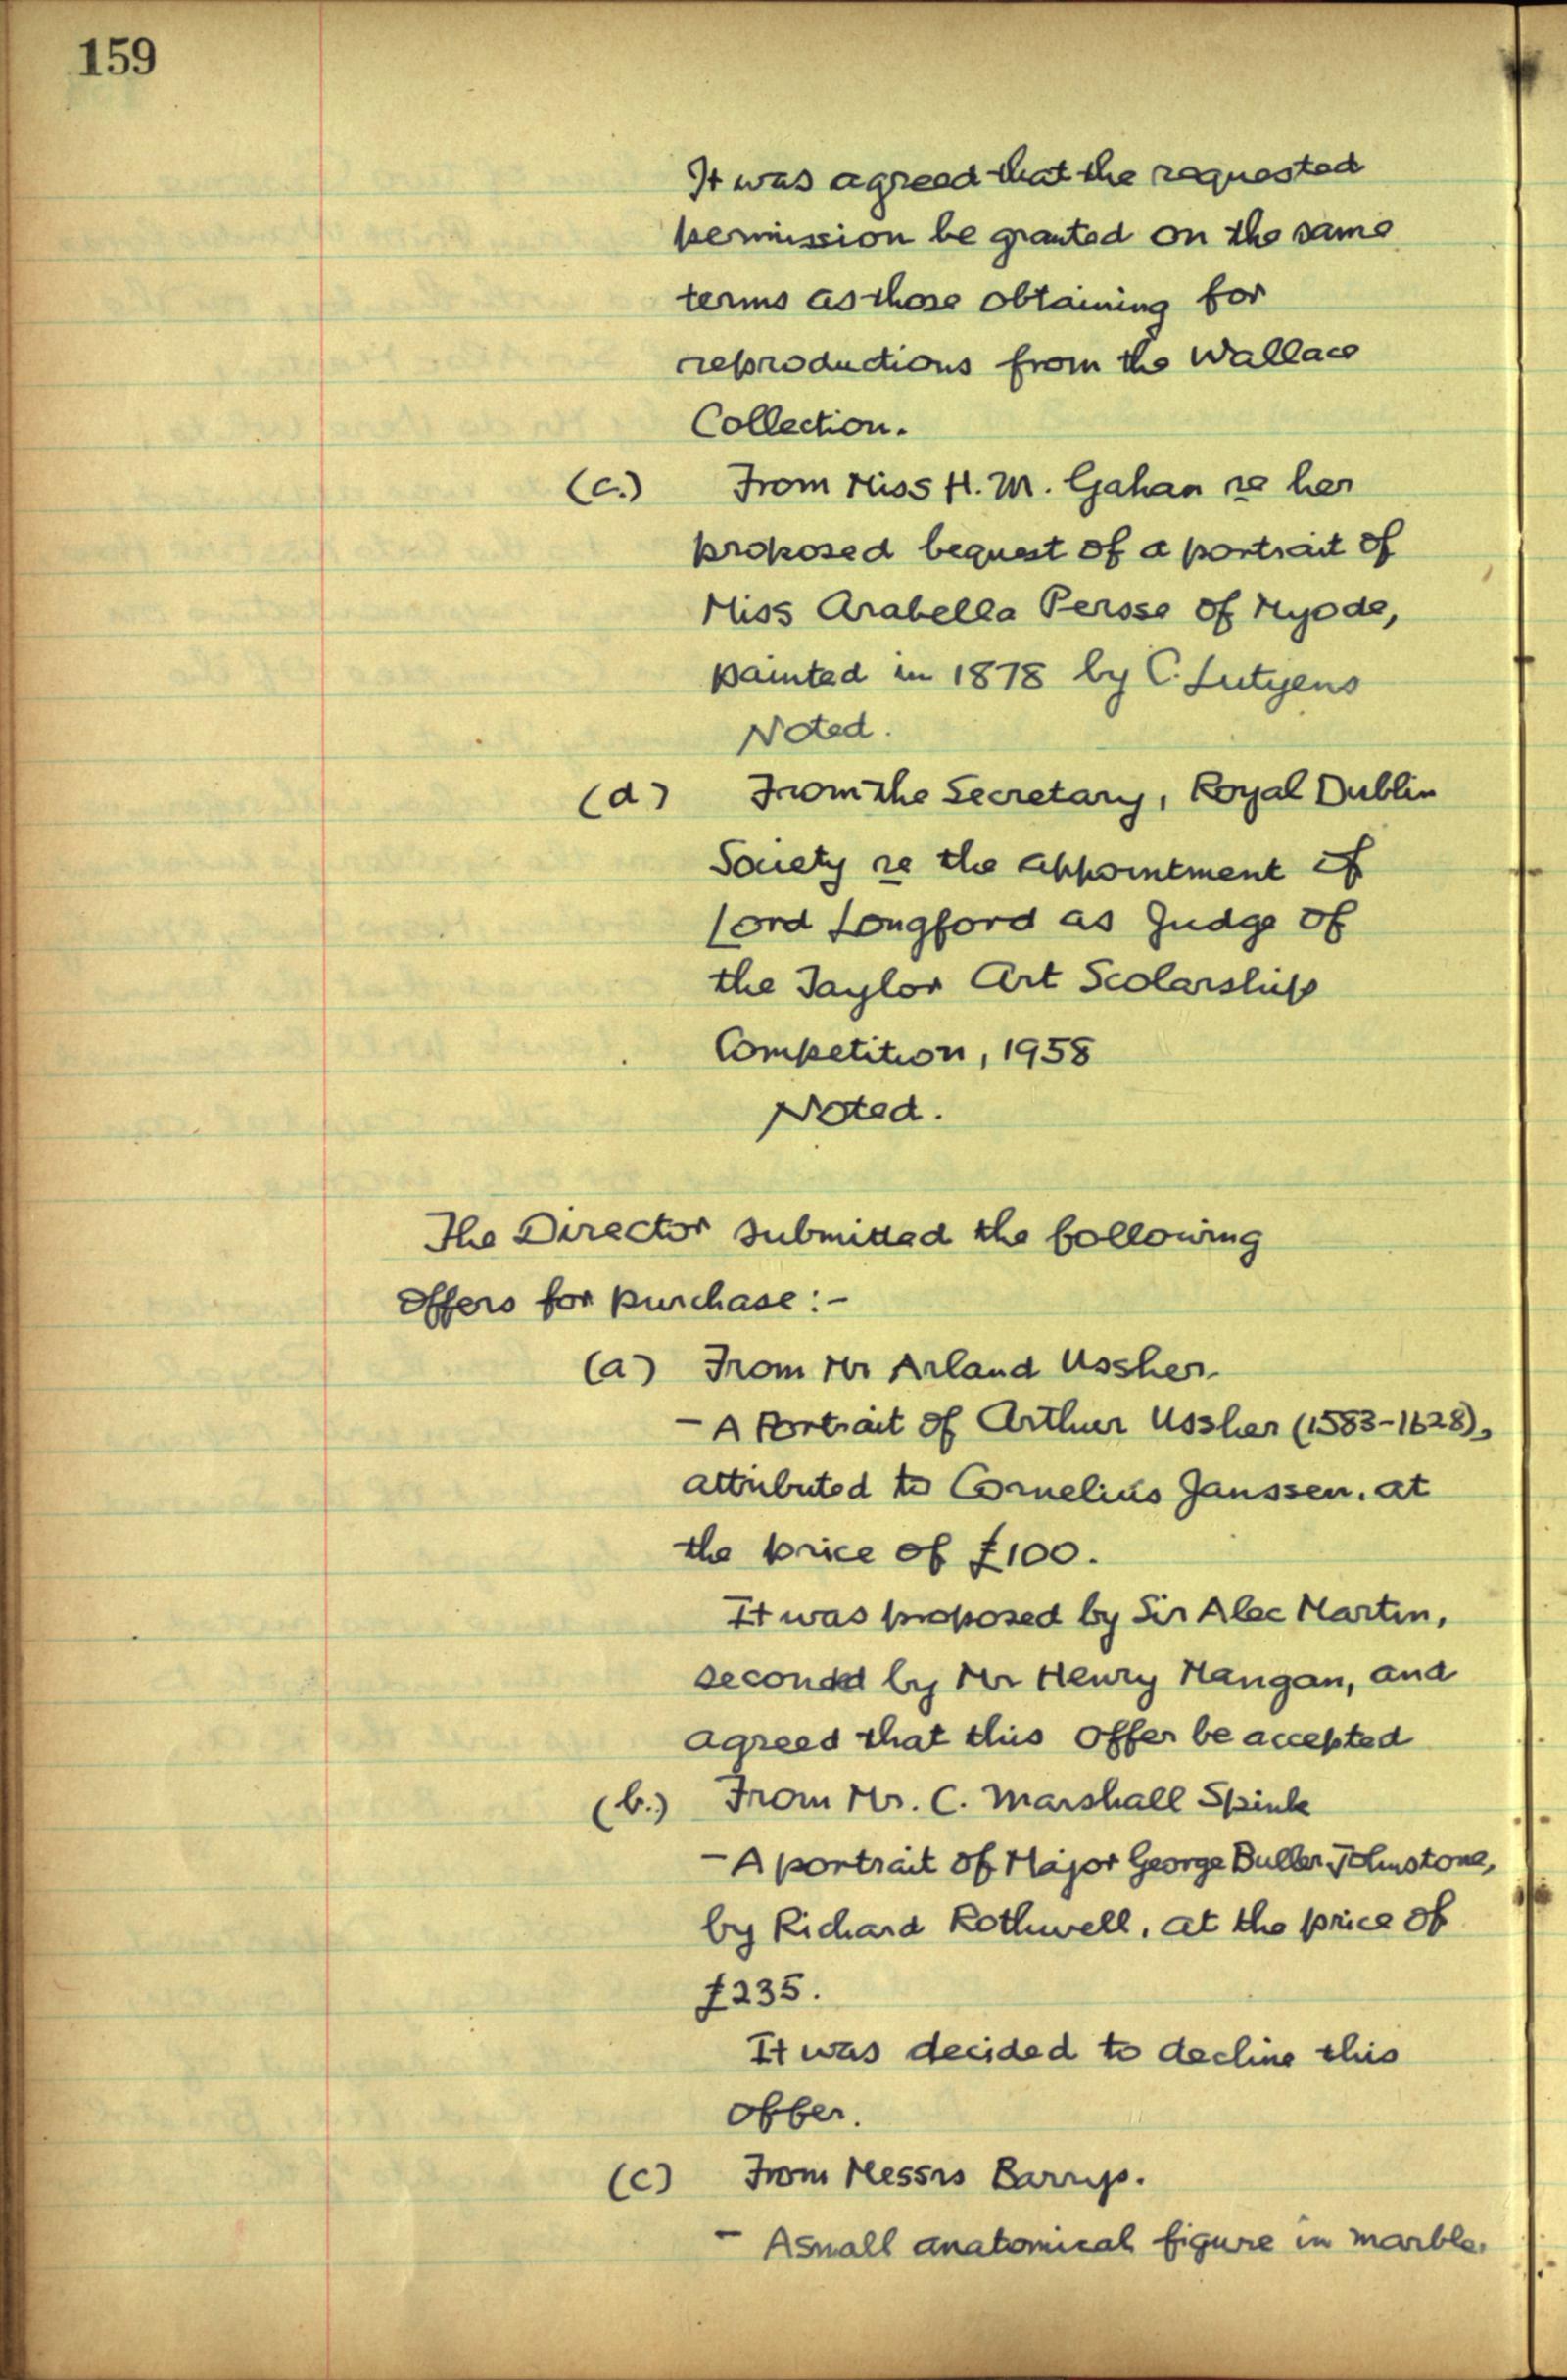 159
It was agreed that the requested
permission be granted on the same
terms as those obtaining for
reproductions from the Wallace
Collection.
(c.) From Miss H. M. Gahan re her
proposed bequest of a portrait of
Miss Arabella Persse of Myode,
painted in 1878 by C. Lutyens
Noted.
(d) From the Secretary, Royal Dublin
Society re the appointment of
Lord Longford as Judge of
the Taylor Art Scolarship
Competition, 1958
Noted.
The Director submitted the following
offers for purchase:-
(a) From Mr Arland Ussher.
- A Portrait of Arthur Ussher (1583-1628),
attributed to Cornelius Janssen, at
the price of £100.
It was proposed by Sir Alec Martin,
seconded by Mr Henry Mangan, and
agreed that this offer be accepted
(b.) From Mr. C. Marshall Spink
- A portrait of Major George Buller Johnstone,
by Richard Rothwell, at the price of
£235.
It was decided to decline this
offer.
(c) From Messrs
- A small anatomical figure in marble.